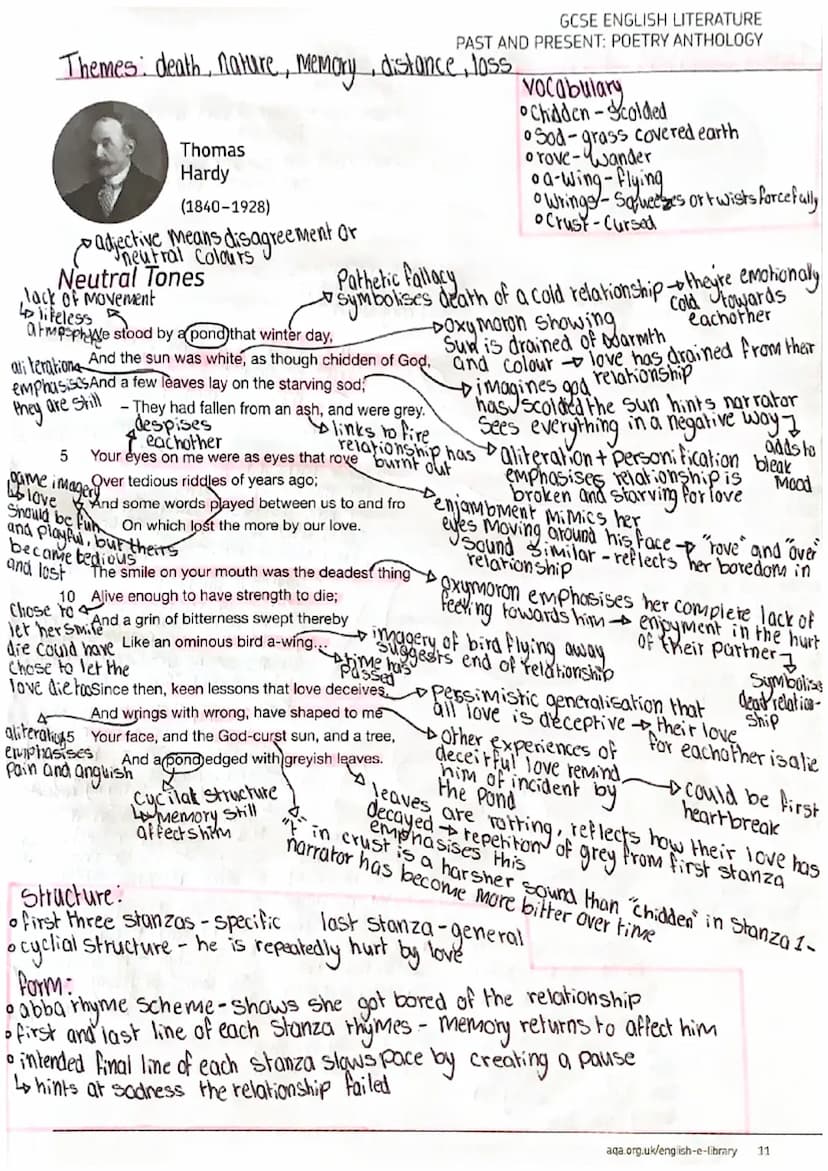 GCSE ENGLISH LITERATURE
PAST AND PRESENT: POETRY ANTHOLOGY
Themes: death, nature, memory, distance, loss
vocabulary
Chidden - Scolded
Sod - grass covered earth
rove - wander
a-wing - flying
Wrings - Squeezes or twists forcefully
Crust - Cursed
Thomas
Hardy
(1840–1928)
adjective means disagreement or
neutral colours
Neutral Tones
lack of movement
↳ lifeless
atmosphere
Pathetic fallacy
symbolises death of a cold relationship → they're emotionally
cold towards
eachother
We stood by a pond that winter day,
And the sun was white, as though chidden of God,
And a few leaves lay on the starving sod;
– They had fallen from an ash, and were grey.
aliteration
emphasises
they are still
oxymoron showing
sun is drained of warmth
and colour → love has drained from their
relationship
imagines god
has scolded the sun hints narrator
sees everything in a negative way
adds to
bleak
mood
links to fire
relationship has
burnt out
aliteration + personification
emphasises relationship is
broken and starving for love
despises
eachother
5 Your eyes on me were as eyes that rove
Over tedious riddles of years ago;
And some words played between us to and fro
On which lost the more by our love.
game imagery
↳ love
should be fun
and playful, but theirs
became tedious
and lost
enjambment mimics her
eyes moving around his face → "rove" and "over"
sound similar - reflects her boredom in
relationship
The smile on your mouth was the deadest thing
10 Alive enough to have strength to die;
And a grin of bitterness swept thereby
Like an ominous bird a-wing...
chose to
let her smile
die could have
chose to let the
love die too
oxymoron emphasises her complete lack of
feeling towards him → enjoyment in the hurt
of their partner
symbolise
dead relation-
ship
imagery of bird flying away
suggests end of relationship
time has
passed
Since then, keen lessons that love deceives,
And wrings with wrong, have shaped to me
15 Your face, and the God-curst sun, and a tree,
And a pond edged with greyish leaves.
aliteration
emphasises
pain and anguish
Perssimistic generalisation that
all love is deceptive → their love
for eachother is a lie
other experiences of
deceitful love remind
him of incident by
the pond
could be first
heartbreak
cycilal structure
↳ memory still
affects him
leaves are rotting, reflects how their love has
decayed → repetiton of grey from first stanza
emphasises this
"t" in crust is a harsher sound than "chidden" in stanza 1-
narrator has become more bitter over time
Structure:
first three stanzas - specific last stanza - general
cyclial structure - he is repeatedly hurt by love
form:
abba rhyme scheme - shows she got bored of the relationship
first and last line of each stanza rhymes - memory returns to affect him
intended final line of each stanza slows pace by creating a pause
↳ hints at sadness the relationship failed
aqa.org.uk/english-e-library 11